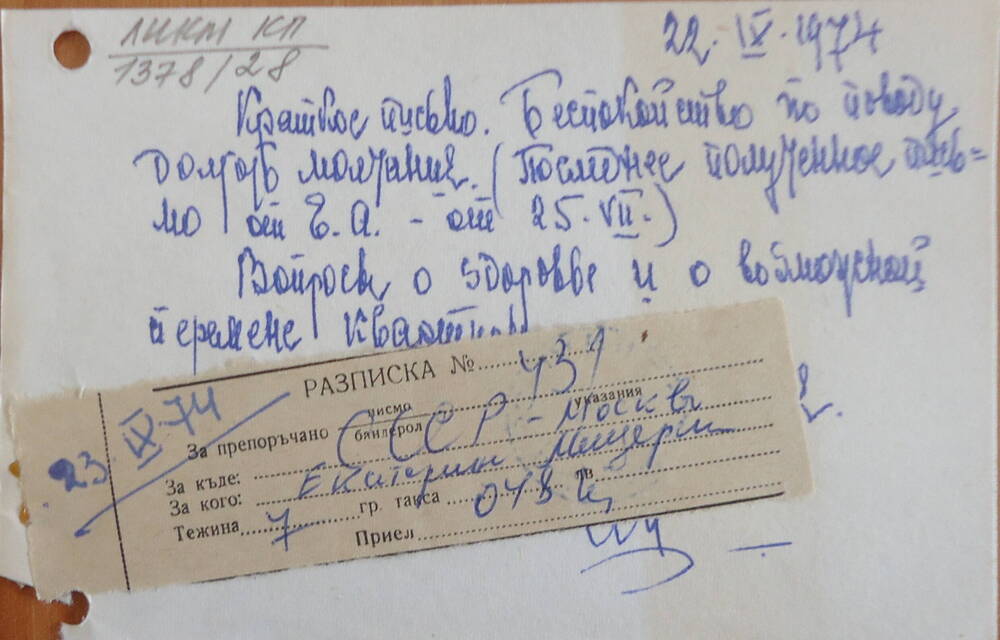 ЛИКМ КП
1378/28
22. IX. 1974
Краткое письмо. Беспокойство по поводу
долгого молчания. (Последнее полученное пись=
мо от Е.А. - от 25.VII.)
Вопросы о здоровье и о возможной
перемене
РАЗПИСКА № 431
23 IX 74
За препоръчано писмо бандерол указания
За къде: СССР - Москва
За кого: Екатерин Мещерск
Тежина 7 гр. такса 048 лв.
Приел